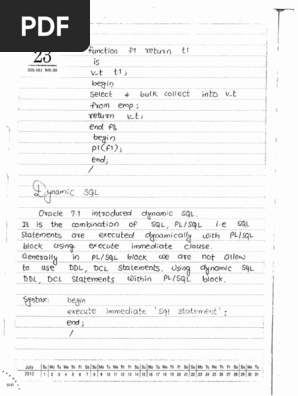 PDF
23
function f1 return t1
is
v_t t1;
begin
Select * bulk collect into v_t
from emp;
return v_t;
end f1;
begin
p1(f1);
end;
/
Dynamic SQL
Oracle 7.1 introduced dynamic SQL.
It is the combination of SQL, PL/SQL i.e SQL
Statements are executed dynamically with PL/SQL
block using execute immediate clause.
Generally in PL/SQL block we are not allow
to use DDL, DCL Statements. Using dynamic SQL
DDL, DCL statements within PL/SQL block.
Syntax: begin
execute immediate 'sql statement';
end;
/
July
2012